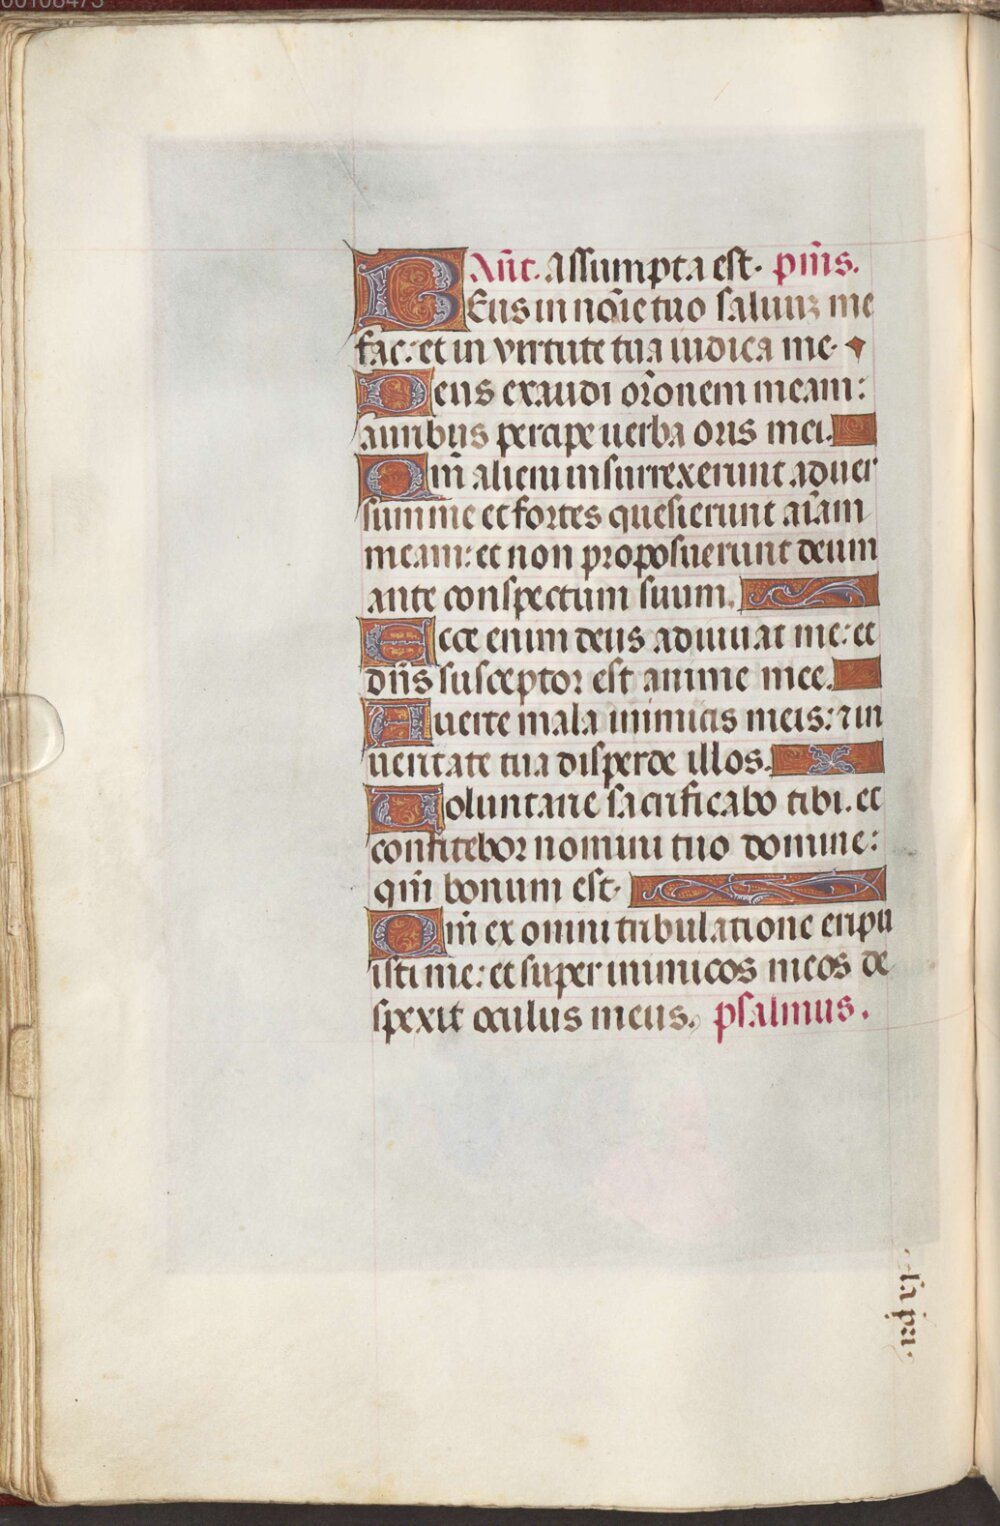 Añt. Assumpta est. pm̃s.
DEus in noĩe tuo saluuz me
fac: et in virtute tua iudica me.
Deus exaudi or̃onem meam:
auribus percipe uerba oris mei.
Qm̃ alieni insurrexerunt aduer
sum me et fortes quesierunt aĩam
meam: et non proposuerunt deum
ante conspectum suum.
Ecce enim deus adiuuat me: et
dñs susceptor est anime mee.
Auerte mala inimicis meis: ⁊ in
ueritate tua disperde illos.
Uoluntarie sacrificabo tibi. et
confitebor nomini tuo domine:
qm̃ bonum est.
Qm̃ ex omni tribulatione eripu
isti me: et super inimicos meos de
spexit oculus meus. psalmus.